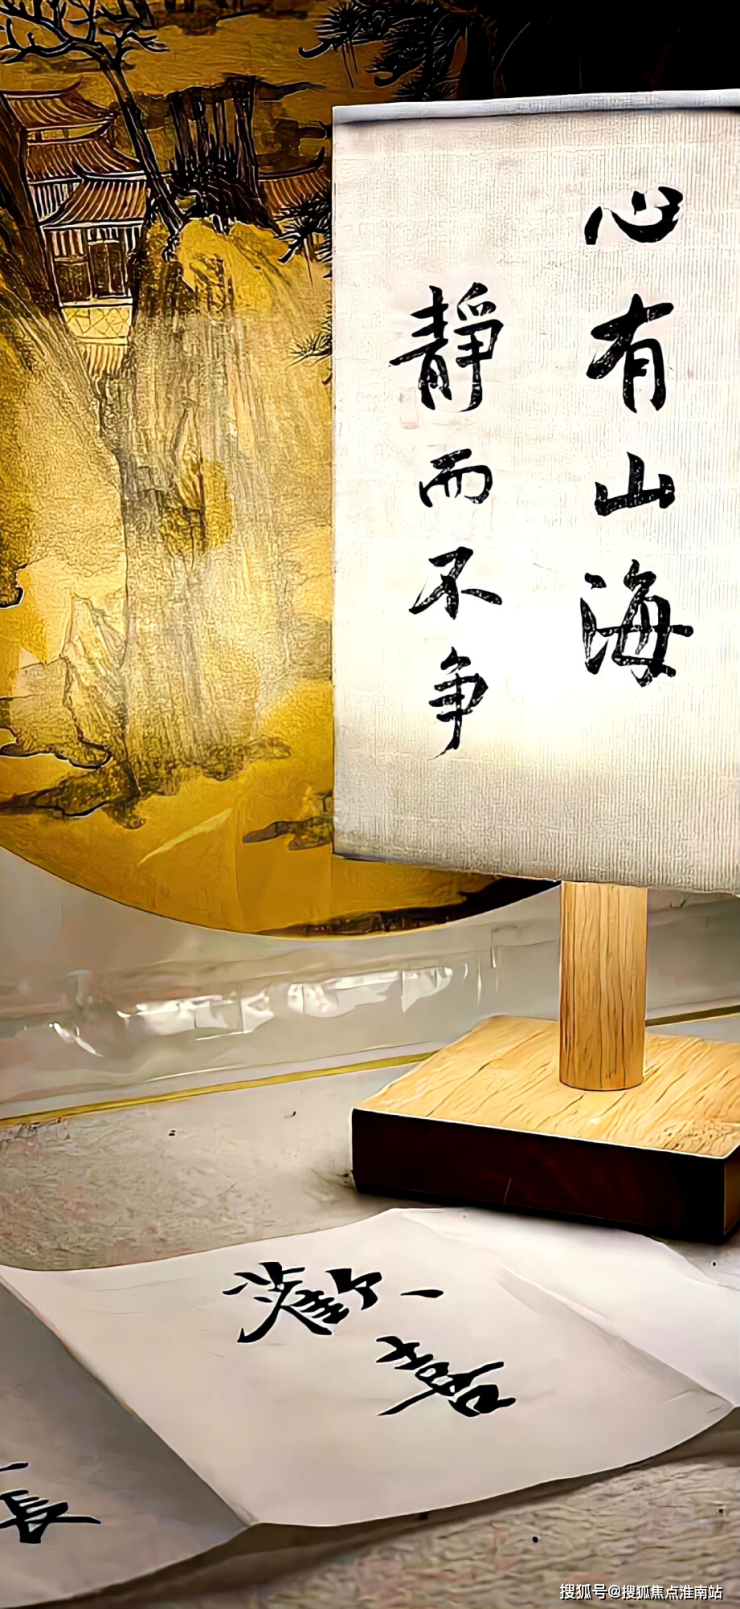 心有山海
静而不争
歡喜
長
搜狐号@搜狐焦点淮南站